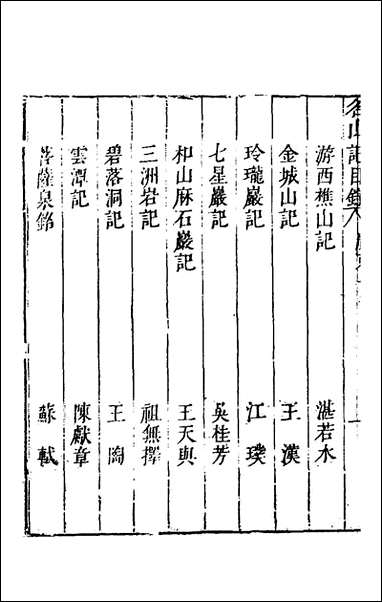 名山記目錄
游西樵山記 湛若水
金城山記 王漢
玲瓏巖記 江璞
七星巖記 吳桂芳
和山麻石巖記 王天與
三洲岩記 祖無擇
碧落洞記 王陶
雲潭記 陳獻章
菩薩泉銘 蘇軾